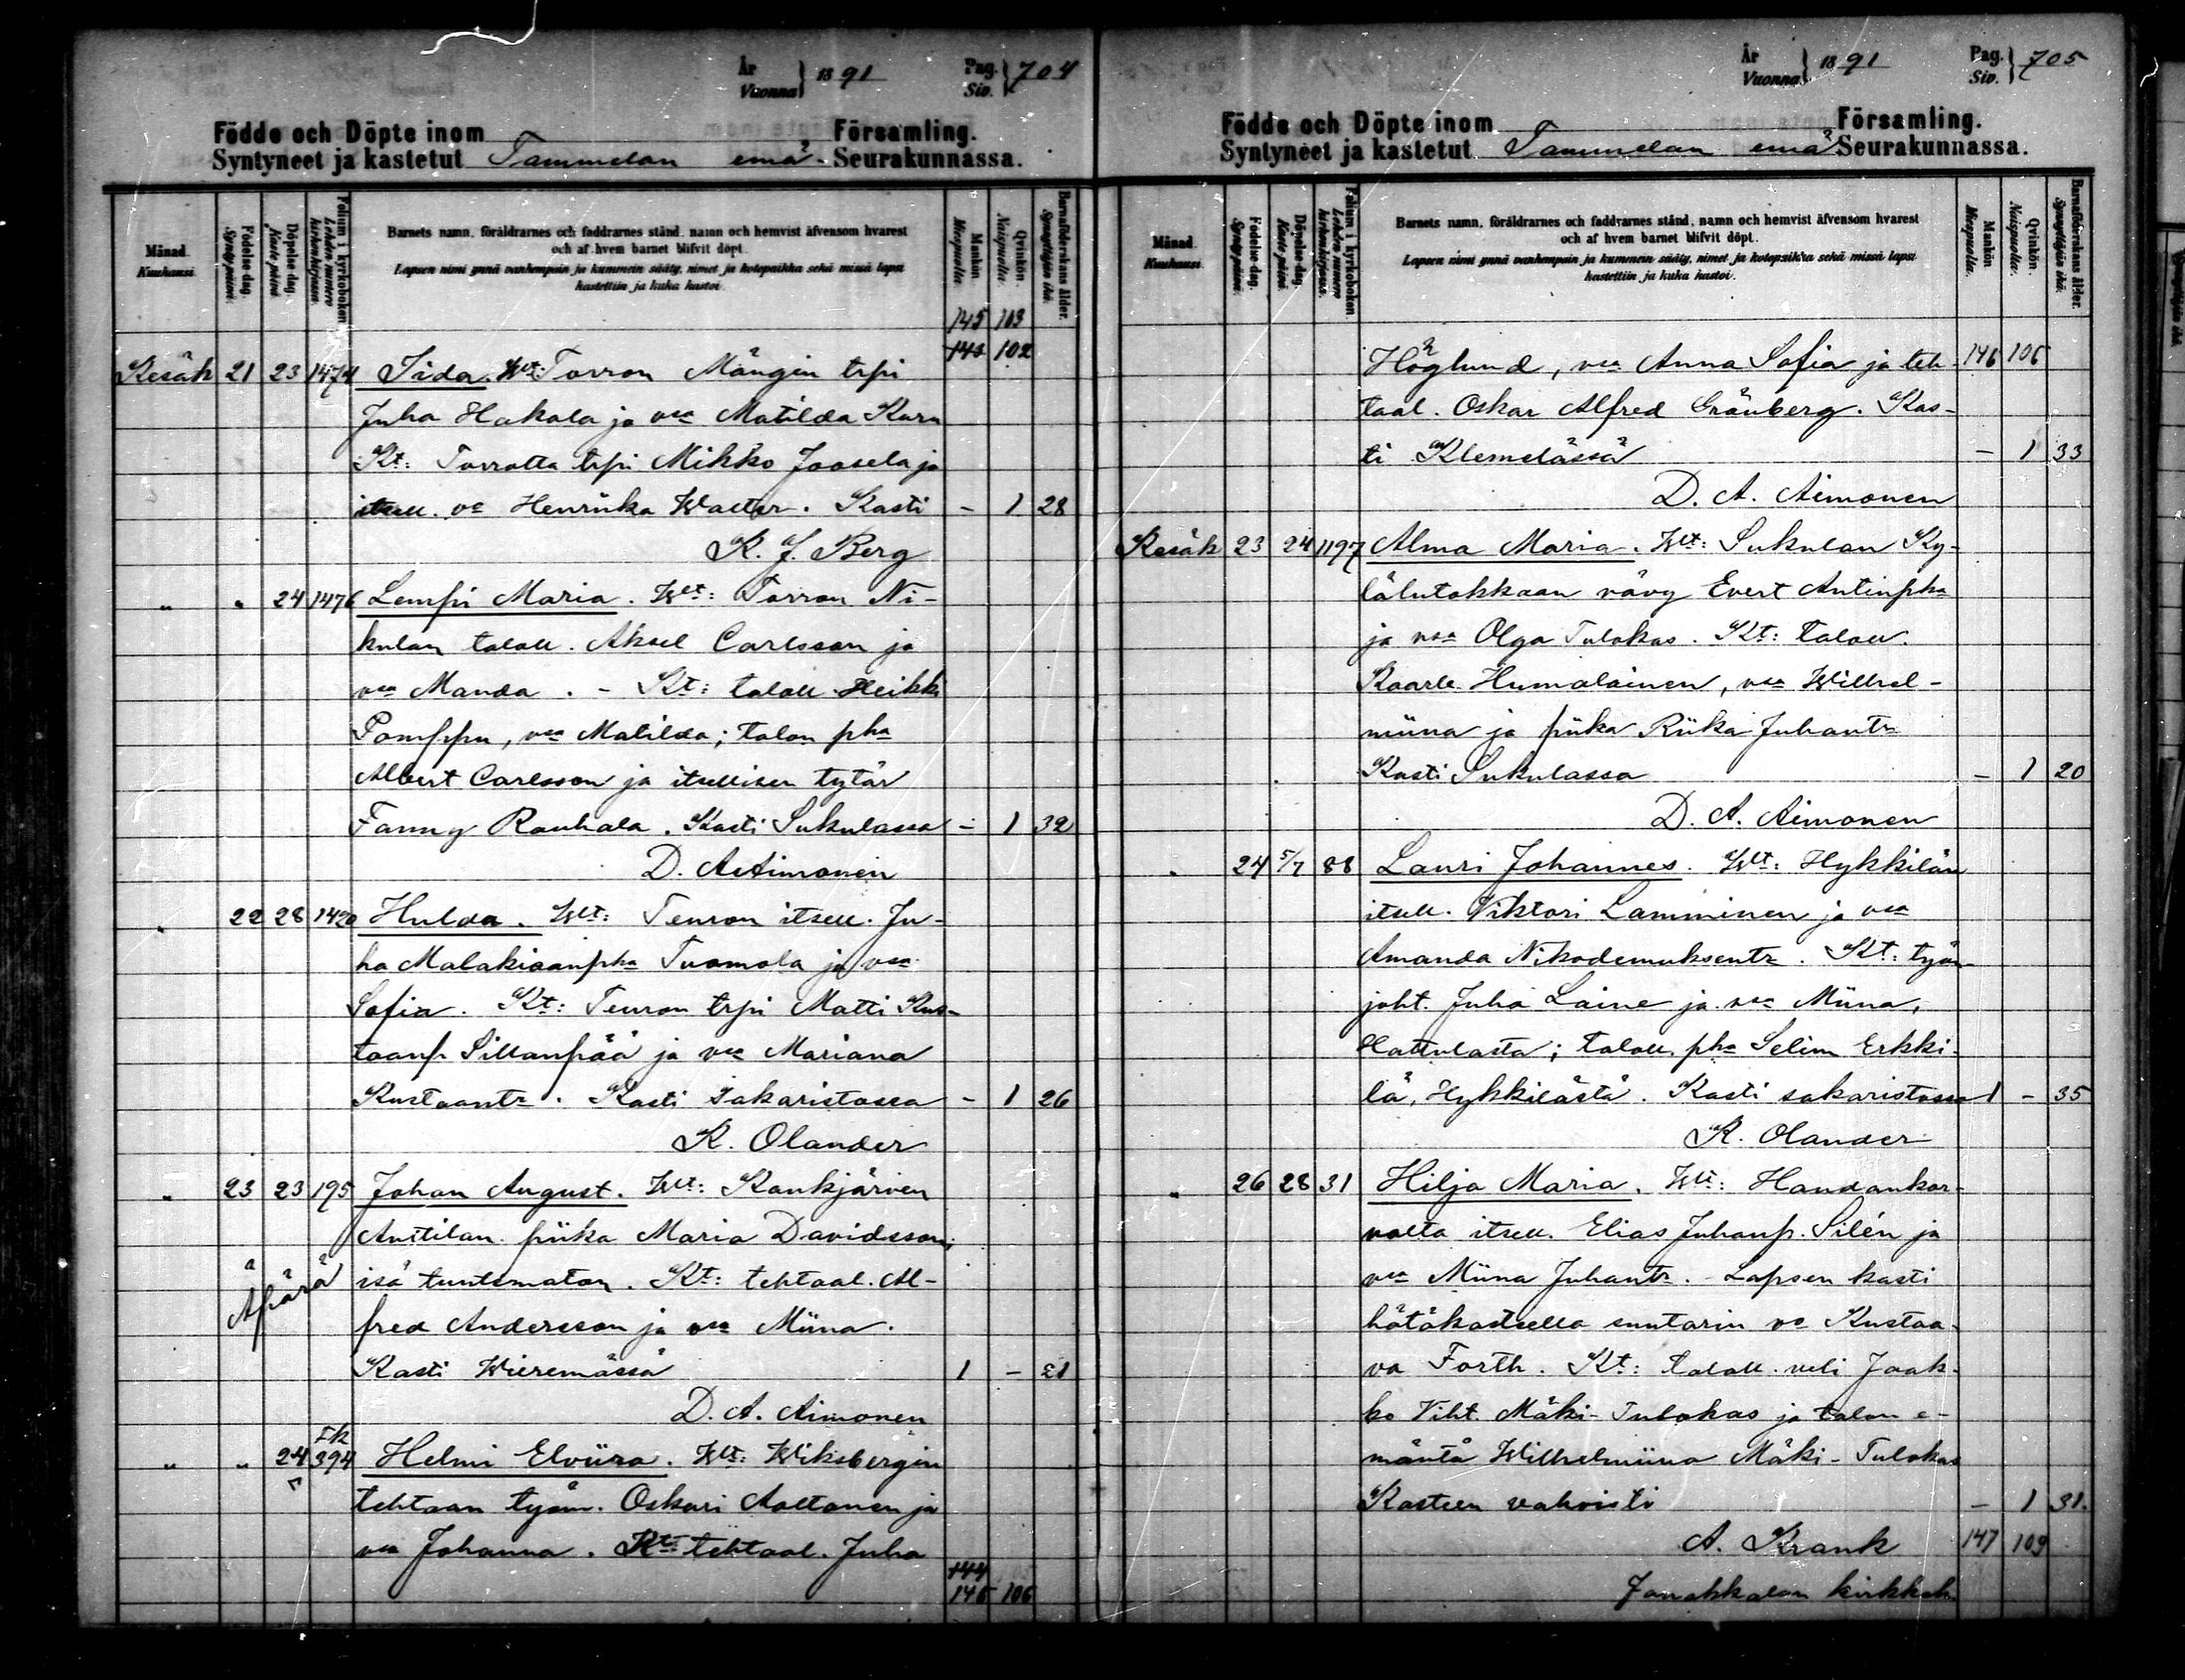 År
Vuonna } 1891
Pag.
Siv. } 704
Födde och Döpte inom Församling.
Syntyneet ja kastetut Tammelan emä- Seurakunnassa.
Månad.
Kuukausi.
Födelse dag.
Syntypäivä.
Döpelse dag.
Kaste päivä.
Folium i kyrkoboken
Lehden numero kirkonkirjassa.
Barnets namn, föräldrarnes och faddrarnes stånd, namn och hemvist äfvensom hvarest
och af hvem barnet blifvit döpt.
Lapsen nimi ynnä vanhempain ja kummein sääty, nimet ja kotopaikka sekä missä lapsi
kastettiin ja kuka kastoi.
Mankön
Miespuolta.
Qvinkön.
Naispuolta.
Barnaföderskans ålder.
Synnyttäjän ikä.
145 103
143 102
Kesäk 21 23 1474 Iida. Wt: Torron Mängin trpi
Juha Hakala ja vaa Matilda Karn
Kt: Torrolta trpi Mikko Jaosela ja
itsell. va Henriika Walter. Kasti - 1 28
K. J. Berg
" " 24 1476 Lempi Maria. Wt: Torron Ni-
kulan taloll. Aksel Carlsson ja
vaa Manda. - Kt: taloll. Heikki
Pomppu, vaa Matilda; talon pka
Albert Carlsson ja itsellisen tytär
Fanny Rauhala. Kasti Sukulassa - 1 32
D. A. Aimonen
" 22 28 1420 Hulda. Wt: Teuron itsell. Ju-
ha Malakiaanpka Tuomola ja vaa
Sofia. Kt: Teuron trpi Matti Kus-
taanp Sillanpää ja vaa Mariana
Kustaantr. Kasti Sakaristossa - 1 26
K. Olander
" 23 23 195 Johan August. Wt: Kaukjärven
Anttilan piika Maria Davidsson;
Äpärä isä tuntematon. Kt: tehtaal. Al-
fred Andersson ja vaa Miina.
Kasti Wieremässä 1 - 21
D. A. Aimonen
Fk
" " 24 394 Helmi Elviira. Wt: Wiksbergin
tehtaan työm. Oskari Aaltonen ja
vaa Johanna. Kt: tehtaal. Juha
144
146 106
År
Vuonna } 1891
Pag.
Siv. } 705
Födde och Döpte inom Församling.
Syntyneet ja kastetut Tammelan emä Seurakunnassa.
Månad.
Kuukausi.
Födelse dag.
Syntypäivä.
Döpelse dag.
Kaste päivä.
Folium i kyrkoboken
Lehden numero kirkonkirjassa.
Barnets namn, föräldrarnes och faddrarnes stånd, namn och hemvist äfvensom hvarest
och af hvem barnet blifvit döpt.
Lapsen nimi ynnä vanhempain ja kummein sääty, nimet ja kotopaikka sekä missä lapsi
kastettiin ja kuka kastoi.
Mankön
Miespuolta.
Qvinkön.
Naispuolta.
Barnaföderskans ålder.
Synnyttäjän ikä.
Höglund, vaa Anna Sofia ja teh- 146 106
taal. Oskar Alfred Grönberg. Kas-
ti Klemelässä - 1 33
D. A. Aimonen
Kesäk 23 24 1197 Alma Maria. Wt: Sukulan Ky-
lälutokkaan vävy Evert Antinpka
ja vaa Olga Tulokas. Kt: taloll.
Kaarle Humalainen, vaa Wilhel-
miina ja piika Riika Juhantr
Kasti Sukulassa - 1 20
D. A. Aimonen
" 24 5/7 88 Lauri Johannes. Wt: Hykkilän
itsell. Viktori Lamminen ja vaa
Amanda Nikodemuksentr. Kt: työn-
joht. Juha Laine ja vaa Miina,
Hattulasta; taloll. pka Selim Erkki-
lä, Hykkilästä. Kasti sakaristossa 1 - 35
K. Olander
" 26 28 31 Hilja Maria. Wt: Haudankor-
valta itsell. Elias Juhanp. Silén ja
vaa Miina Juhantr. - Lapsen kasti
hätäkasteella suutarin va Kustaa-
va Forth. Kt: taloll. veli Jaak-
ko Viht. Mäki-Tulokas ja talon e-
mäntä Wilhelmiina Mäki-Tulokas
Kasteen vahvisti - 1 31.
A. Krank 147 109
Janakkalan kirkkoh.